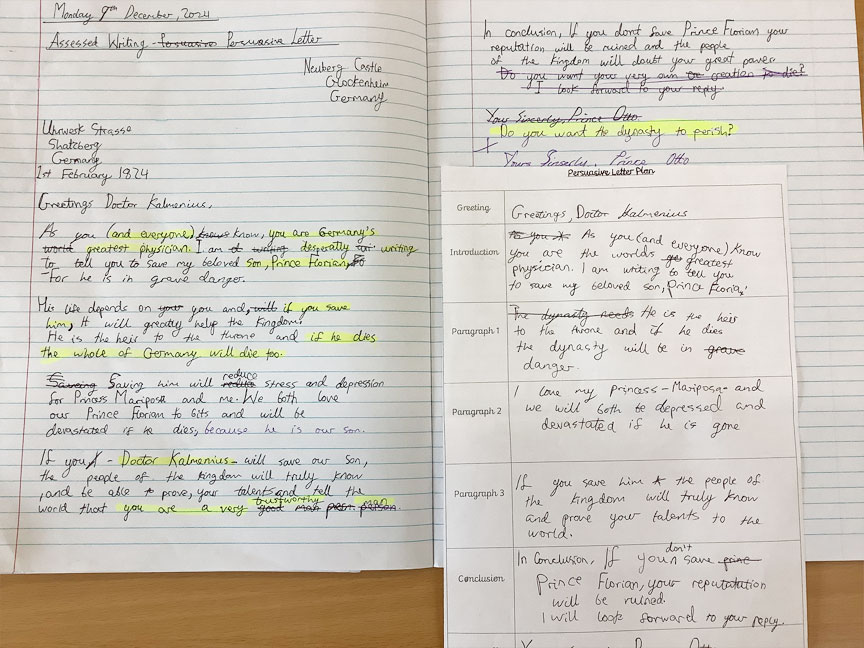 Monday 9th December, 2024
Assessed Writing - Persuasive Persuasive Letter
Neuberg Castle
Glockenheim
Germany
Uhrwesk Strasse
Shatzberg
Germany
1st February 1824
Greetings Doctor Kalmenius,
As you (and everyone) know, you are Germany's
world greatest physician. I am writing desperatly writing
to tell you to save my beloved son, Prince Florian,
for he is in grave danger.
His life depends on your you and, will if you save
him, It will greatly help the Kingdom.
He is the heir to the throne and if he dies
the whole of Germany will die too.
Saveing Saving him will reduce stress and depression
for Princess Mariposa and me. We both love
our Prince Florian to bits and will be
devastated if he dies, because he is our son.
If you - Doctor Kalmenius - will save our son,
the people of the Kingdom will truly know
,and be able to prove, your talents and tell the
world that you are a very good trustworthy man person man.
In conclusion, If you dont save Prince Florian your
reputation will be ruined and the people
of the Kingdom will doubt your great power.
Do you want your very own creation to die?
I look forward to your reply
Your Sincerly, Prince Otto
Do you want the dynasty to perish?
Yours Sinserly, Prince Otto
Persuasive Letter Plan
Greeting
Greetings, Doctor Kalmenius
Introduction
As you As you (and everyone) know
you are the worlds greatest
physician. I am writing to tell you
to save my beloved son, Prince Florian,
Paragraph 1
The dynasty needs He is the heir
to the throne and if he dies
the dynasty will be in grave
danger.
Paragraph 2
I love my princess - Mariposa - and
we will both be depressed and
devastated if he is gone
Paragraph 3
If you save him the people of
the kingdom will truly know
and prove your talents to the
world.
Conclusion
In Conclusion, If you don't save
Prince Florian, your reputatation
will be ruined.
I will look forward to your reply.